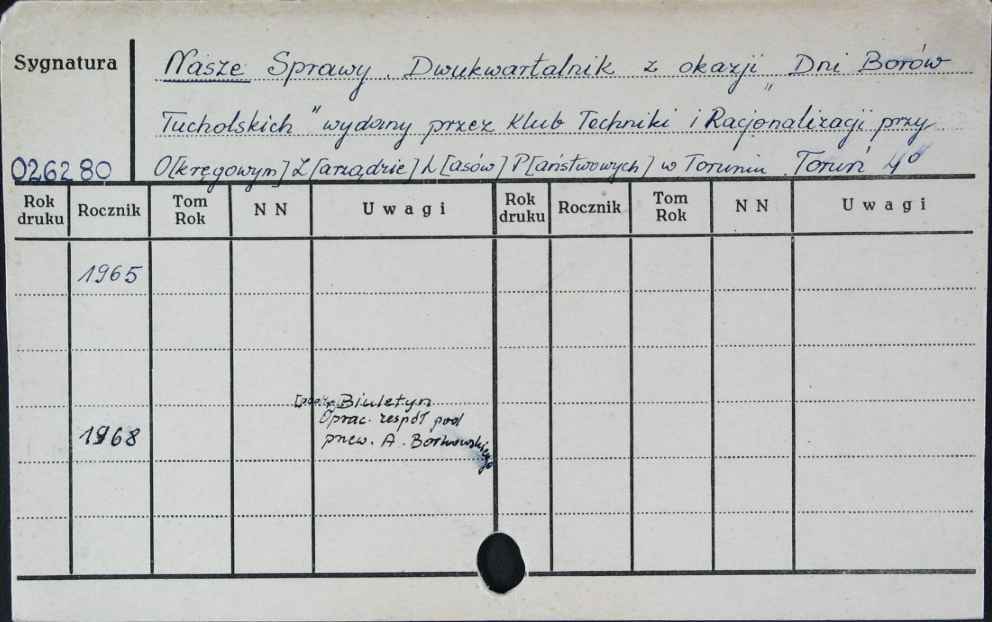 Sygnatura
Nasze Sprawy. Dwukwartalnik z okazji „Dni Borów
Tucholskich" wydany przez Klub Techniki i Racjonalizacji przy
026280
O[kręgowym] Z[arządzie] L[asów] P[aństwowych] w Toruniu. Toruń 4°
Rok druku Rocznik Tom Rok N N Uwagi Rok druku Rocznik Tom Rok N N Uwagi
1965
Biuletyn
Oprac. zespół pod
1968
A. Borkowskiego